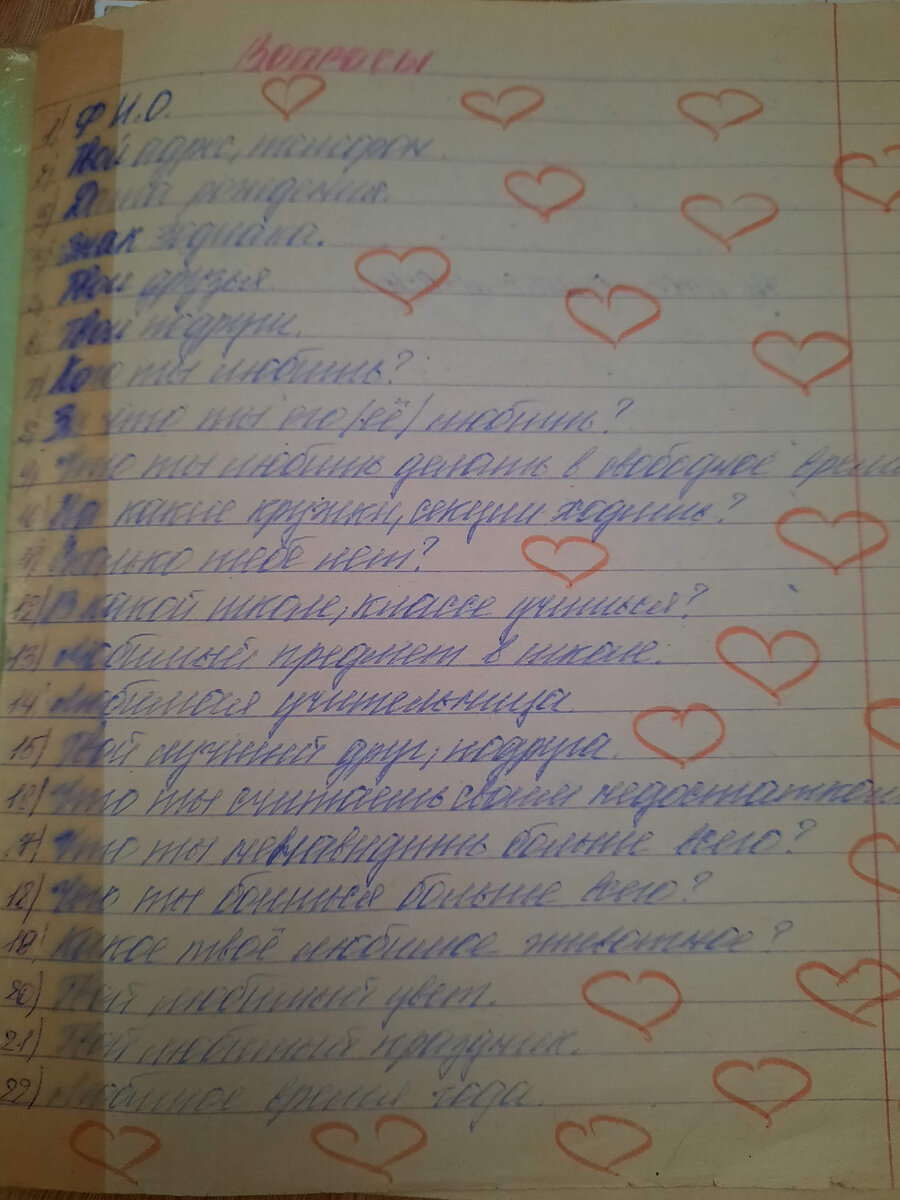 Вопросы
1) Ф.И.О.
2) Твой адрес, телефон.
3) Дата рождения.
4) Знак зодиака.
5) Твои друзья.
6) Твои подруги.
7) Кого ты любишь?
8) За что ты его (её) любишь?
9) Что ты любишь делать в свободное время
10) На какие кружки, секции ходишь?
11) Сколько тебе лет?
12) В какой школе, классе учишься?
13) Любимый предмет в школе.
14) Любимая учительница.
15) Твой лучший друг, подруга.
16) Что ты считаешь своим недостатком
17) Что ты ненавидишь больше всего?
18) Чего ты боишься больше всего?
19) Какое твоё любимое животное?
20) Твой любимый цвет.
21) Твой любимый праздник.
22) Любимое время года.